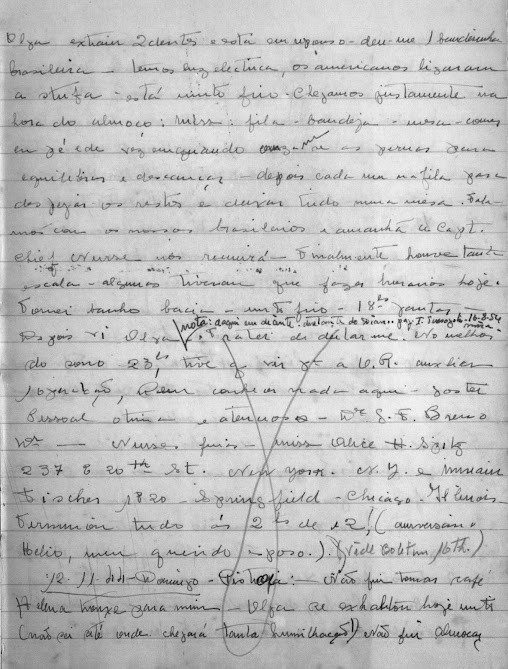 Olga extrain 2 dentes e está em repouso - deu-me 1 bandeirinha
brasileira - temos eng electrica, os americanos lizaram
a stufa - está muito frio. Chegamos justamente na
hora do almoço: Miss: fila - Bandeja - mesa - comer
em pé e de vez emquando as pernas para
equilibrar e descançar - depois cada um na fila para
despejar os restos e deixar tudo numa mesa. Fala-
mos com os nossos brasileiros e amanhã a Capt.
Chief Nurse nos reunirá - Finalmente houve tanta
escala - algumas tiveram que fazer horarios hoje.
Tomei banho bacia - muito frio - 18 hs jantar
nota: daqui em deante - 16-8-54
Depois vi Olga. Tratei de deitar-me. No melhor
do sono 23 hs, tive q vir pª a O.R. auxiliar
operação, sem conhecer nada aqui - gostei
Pessoal otimo e atencioso - Dr. G. F. Bruno
Dr — Nurses finis - Miss Alice H. Spitz
237 E 20th St. New York. N.Y. e Miriam
Fischer 1820 - Springfield - Chicago - Illinois
Terminou tudo ás 2 hs de 12, (aniversario
Helio, meu querido esposo.). (Vide Boletim 16th.)
12-11-44 - Domingo - Pistoia: - Não fui tomar café
Helena trouxe para mim - Olga se exhaltou hoje mtº
(não sei até onde chegará tanta humilhação!) Não fui almoçar